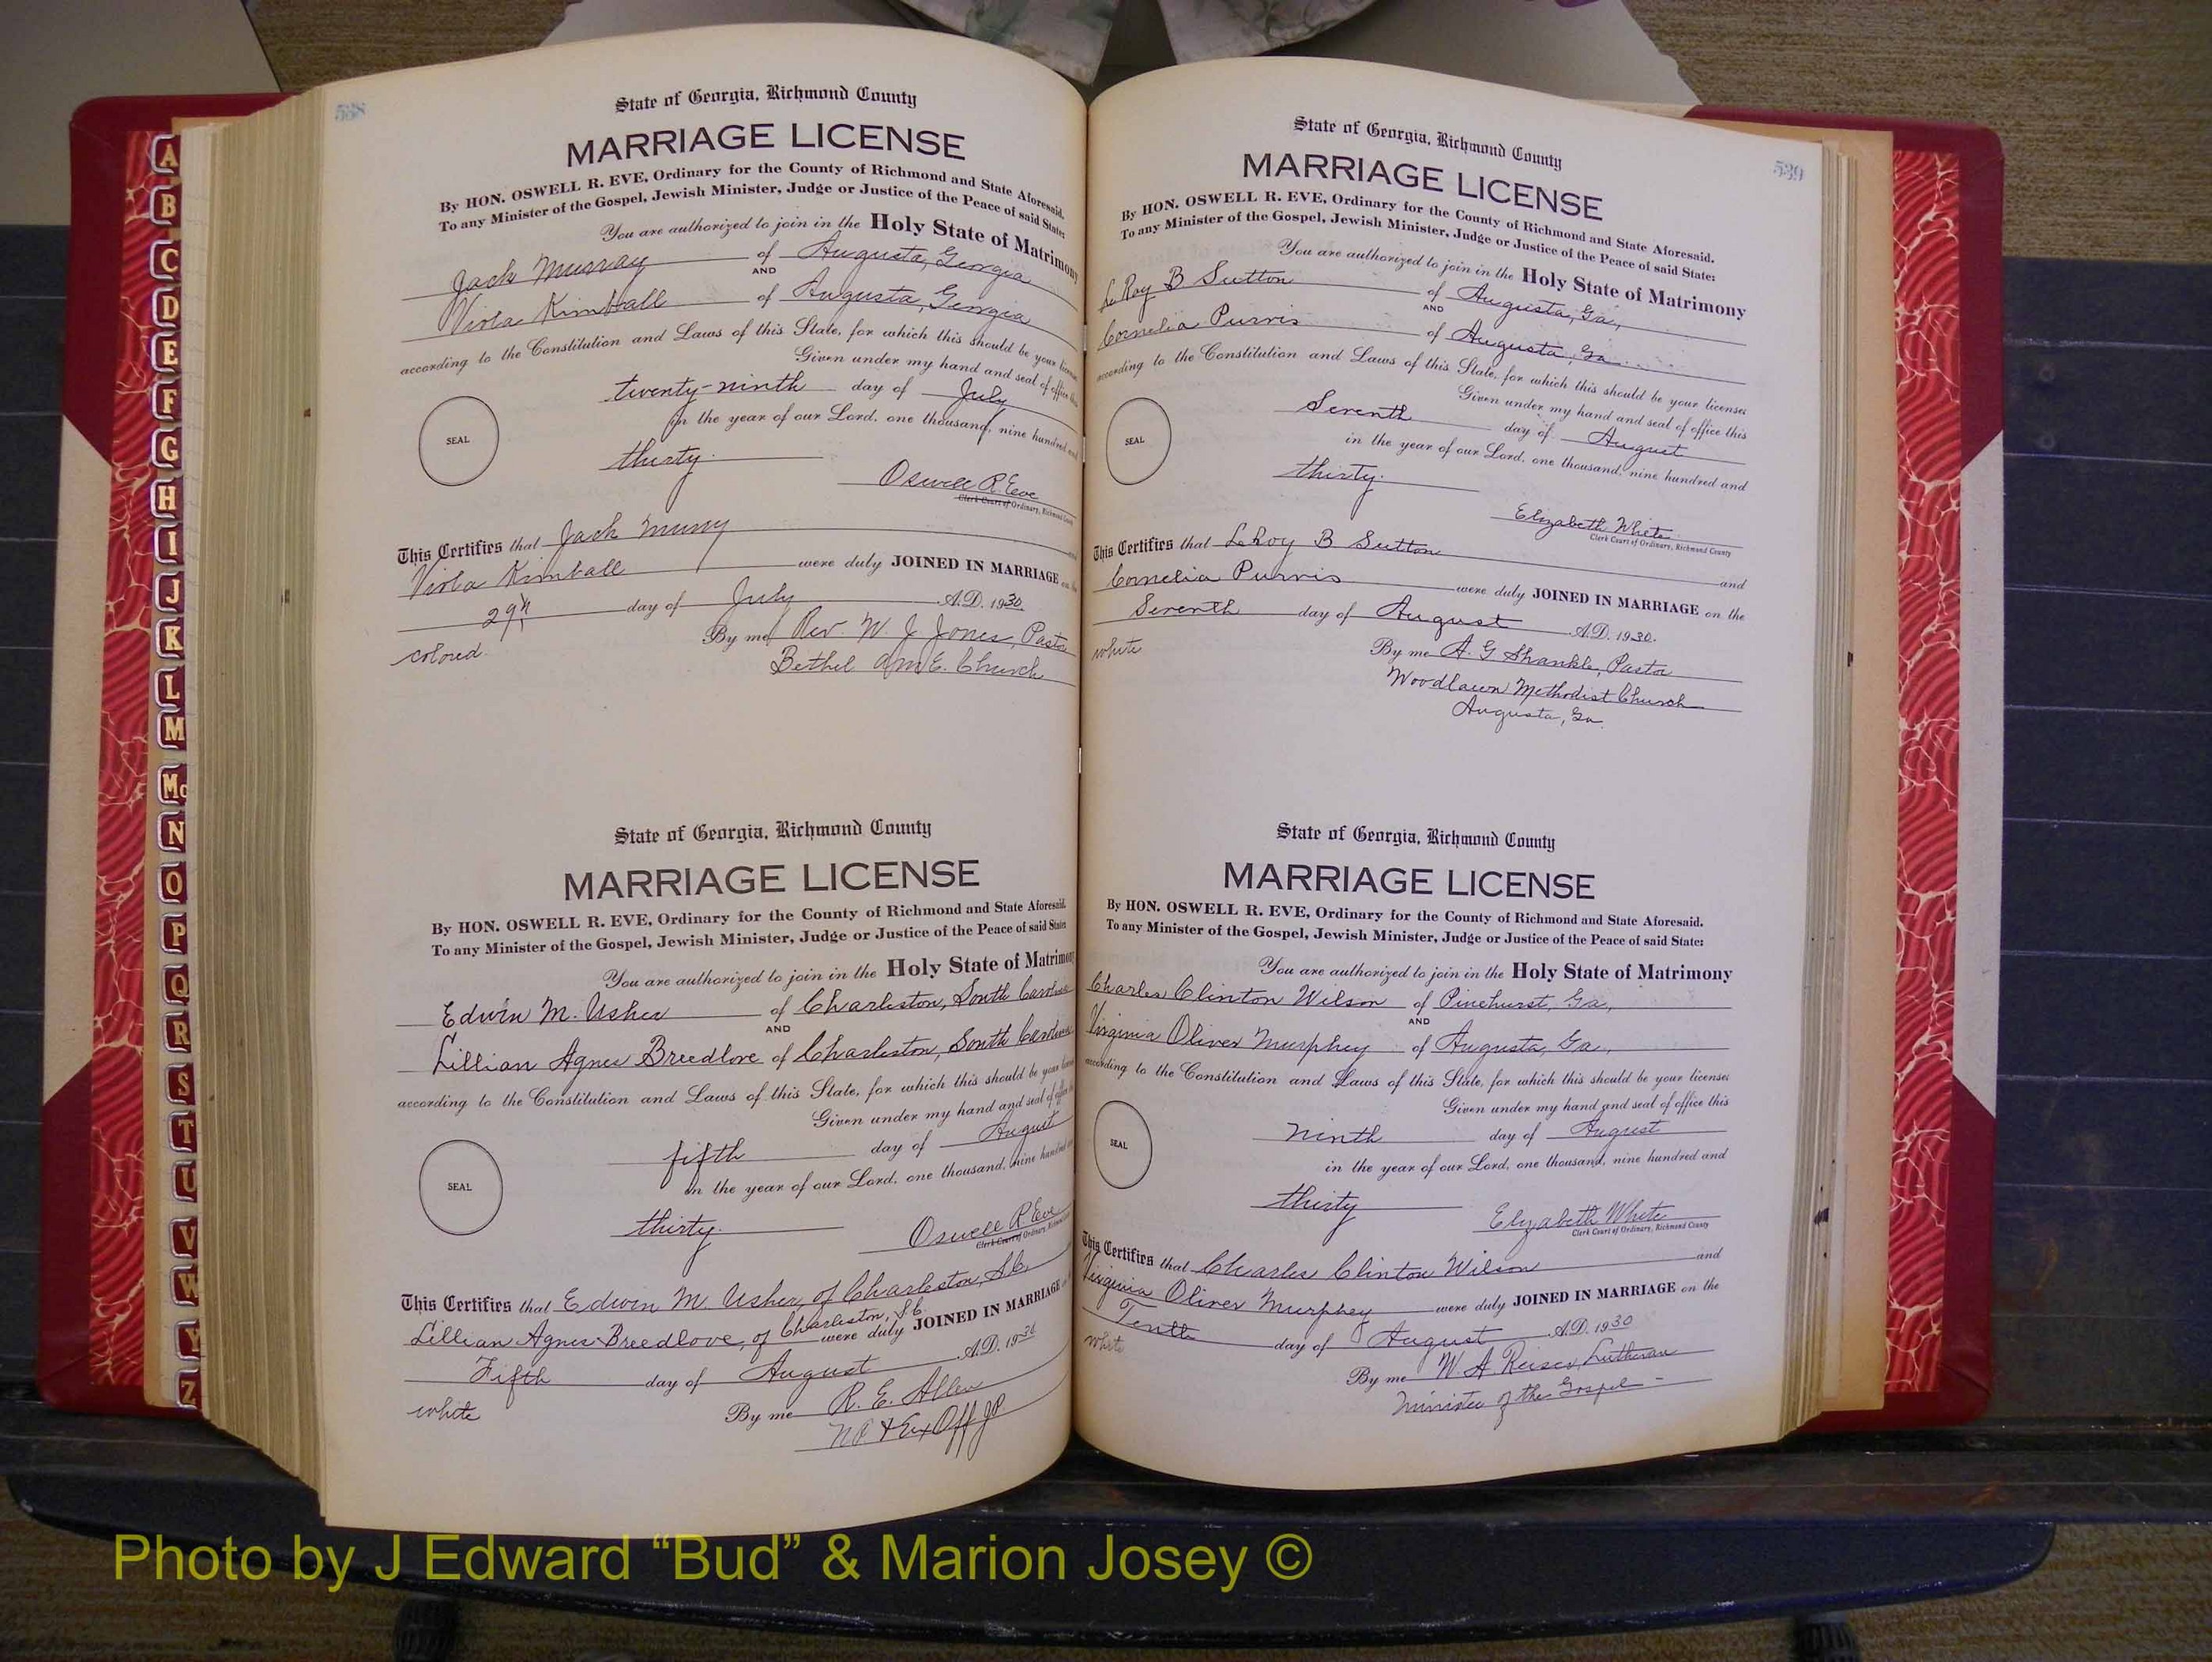 538
State of Georgia, Richmond County
MARRIAGE LICENSE
By HON. OSWELL R. EVE, Ordinary for the County of Richmond and State Aforesaid.
To any Minister of the Gospel, Jewish Minister, Judge or Justice of the Peace of said State:
You are authorized to join in the Holy State of Matrimony
Jack Murray of Augusta, Georgia
AND
Viola Kimball of Augusta, Georgia
according to the Constitution and Laws of this State, for which this should be your license
Given under my hand and seal of office this
twenty-ninth day of July
in the year of our Lord, one thousand, nine hundred and
SEAL
thirty.
Oswell R. Eve
Clerk Court of Ordinary, Richmond County
This Certifies that Jack Murry and
Viola Kimball were duly JOINED IN MARRIAGE on the
29th day of July A.D. 1930.
colored. By me Rev. W. J. Jones, Pastor
Bethel A.M.E. Church
State of Georgia, Richmond County
MARRIAGE LICENSE
By HON. OSWELL R. EVE, Ordinary for the County of Richmond and State Aforesaid.
To any Minister of the Gospel, Jewish Minister, Judge or Justice of the Peace of said State:
You are authorized to join in the Holy State of Matrimony
Edwin M. Usher of Charleston, South Carolina
AND
Lillian Agnes Breedlove of Charleston, South Carolina
according to the Constitution and Laws of this State, for which this should be your license
Given under my hand and seal of office this
fifth day of August
SEAL
in the year of our Lord, one thousand, nine hundred and
thirty.
Oswell R. Eve
Clerk Court of Ordinary, Richmond County
This Certifies that Edwin M. Usher, of Charleston, S.C.
Lillian Agnes Breedlove, of Charleston, S.C. were duly JOINED IN MARRIAGE on the
Fifth day of August A.D. 1930
white By me R. E. Allen
N.P. & Ex Off J.P.
539
State of Georgia, Richmond County
MARRIAGE LICENSE
By HON. OSWELL R. EVE, Ordinary for the County of Richmond and State Aforesaid.
To any Minister of the Gospel, Jewish Minister, Judge or Justice of the Peace of said State:
You are authorized to join in the Holy State of Matrimony
LeRoy B Sutton of Augusta, Ga.,
AND
Cornelia Purvis of Augusta, Ga.
according to the Constitution and Laws of this State, for which this should be your license:
Given under my hand and seal of office this
Seventh day of August
SEAL
in the year of our Lord, one thousand, nine hundred and
thirty.
Elizabeth White
Clerk Court of Ordinary, Richmond County
This Certifies that LeRoy B Sutton and
Cornelia Purvis were duly JOINED IN MARRIAGE on the
Seventh day of August A.D. 1930.
white By me A. G Shankle, Pastor
Woodlawn Methodist Church
Augusta, Ga.
State of Georgia, Richmond County
MARRIAGE LICENSE
By HON. OSWELL R. EVE, Ordinary for the County of Richmond and State Aforesaid.
To any Minister of the Gospel, Jewish Minister, Judge or Justice of the Peace of said State:
You are authorized to join in the Holy State of Matrimony
Charles Clinton Wilson of Pinehurst, Ga.,
AND
Virginia Oliver Murphey of Augusta, Ga.,
according to the Constitution and Laws of this State, for which this should be your license:
Given under my hand and seal of office this
ninth day of August
SEAL
in the year of our Lord, one thousand, nine hundred and
thirty
Elizabeth White
Clerk Court of Ordinary, Richmond County
This Certifies that Charles Clinton Wilson and
Virginia Oliver Murphey were duly JOINED IN MARRIAGE on the
Tenth day of August A.D. 1930
white By me W. A. Reiser, Lutheran
Minister of the Gospel -
A
B
C
D
E
F
G
H
I
J
K
L
M
Mc
N
O
P
Q
R
S
T
U
V
W
Y
Z
Photo by J Edward “Bud” & Marion Josey ©